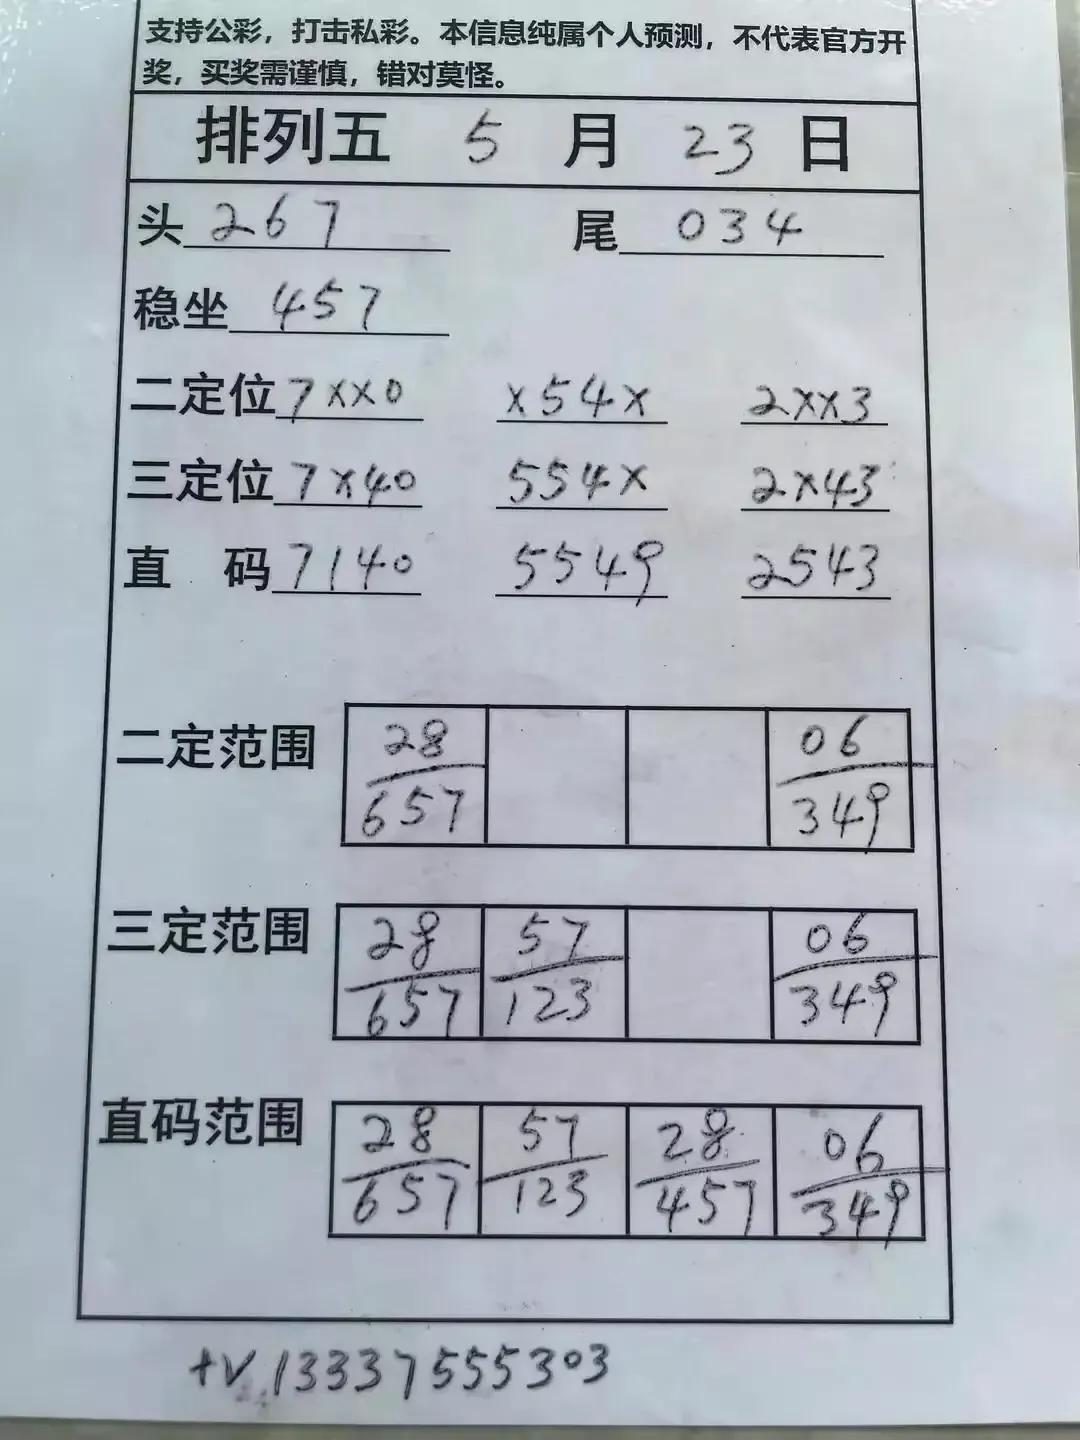 支持公彩，打击私彩。本信息纯属个人预测，不代表官方开
奖，买奖需谨慎，错对莫怪。
排列五 5 月 23 日
头 267 尾 034
稳坐 457
二定位 7××0 ×54× 2××3
三定位 7×40 554× 2×43
直 码 7140 5549 2543
二定范围
28 06
657 349
三定范围
28 57 06
657 123 349
直码范围
28 57 28 06
657 123 457 349
+V 13337555303